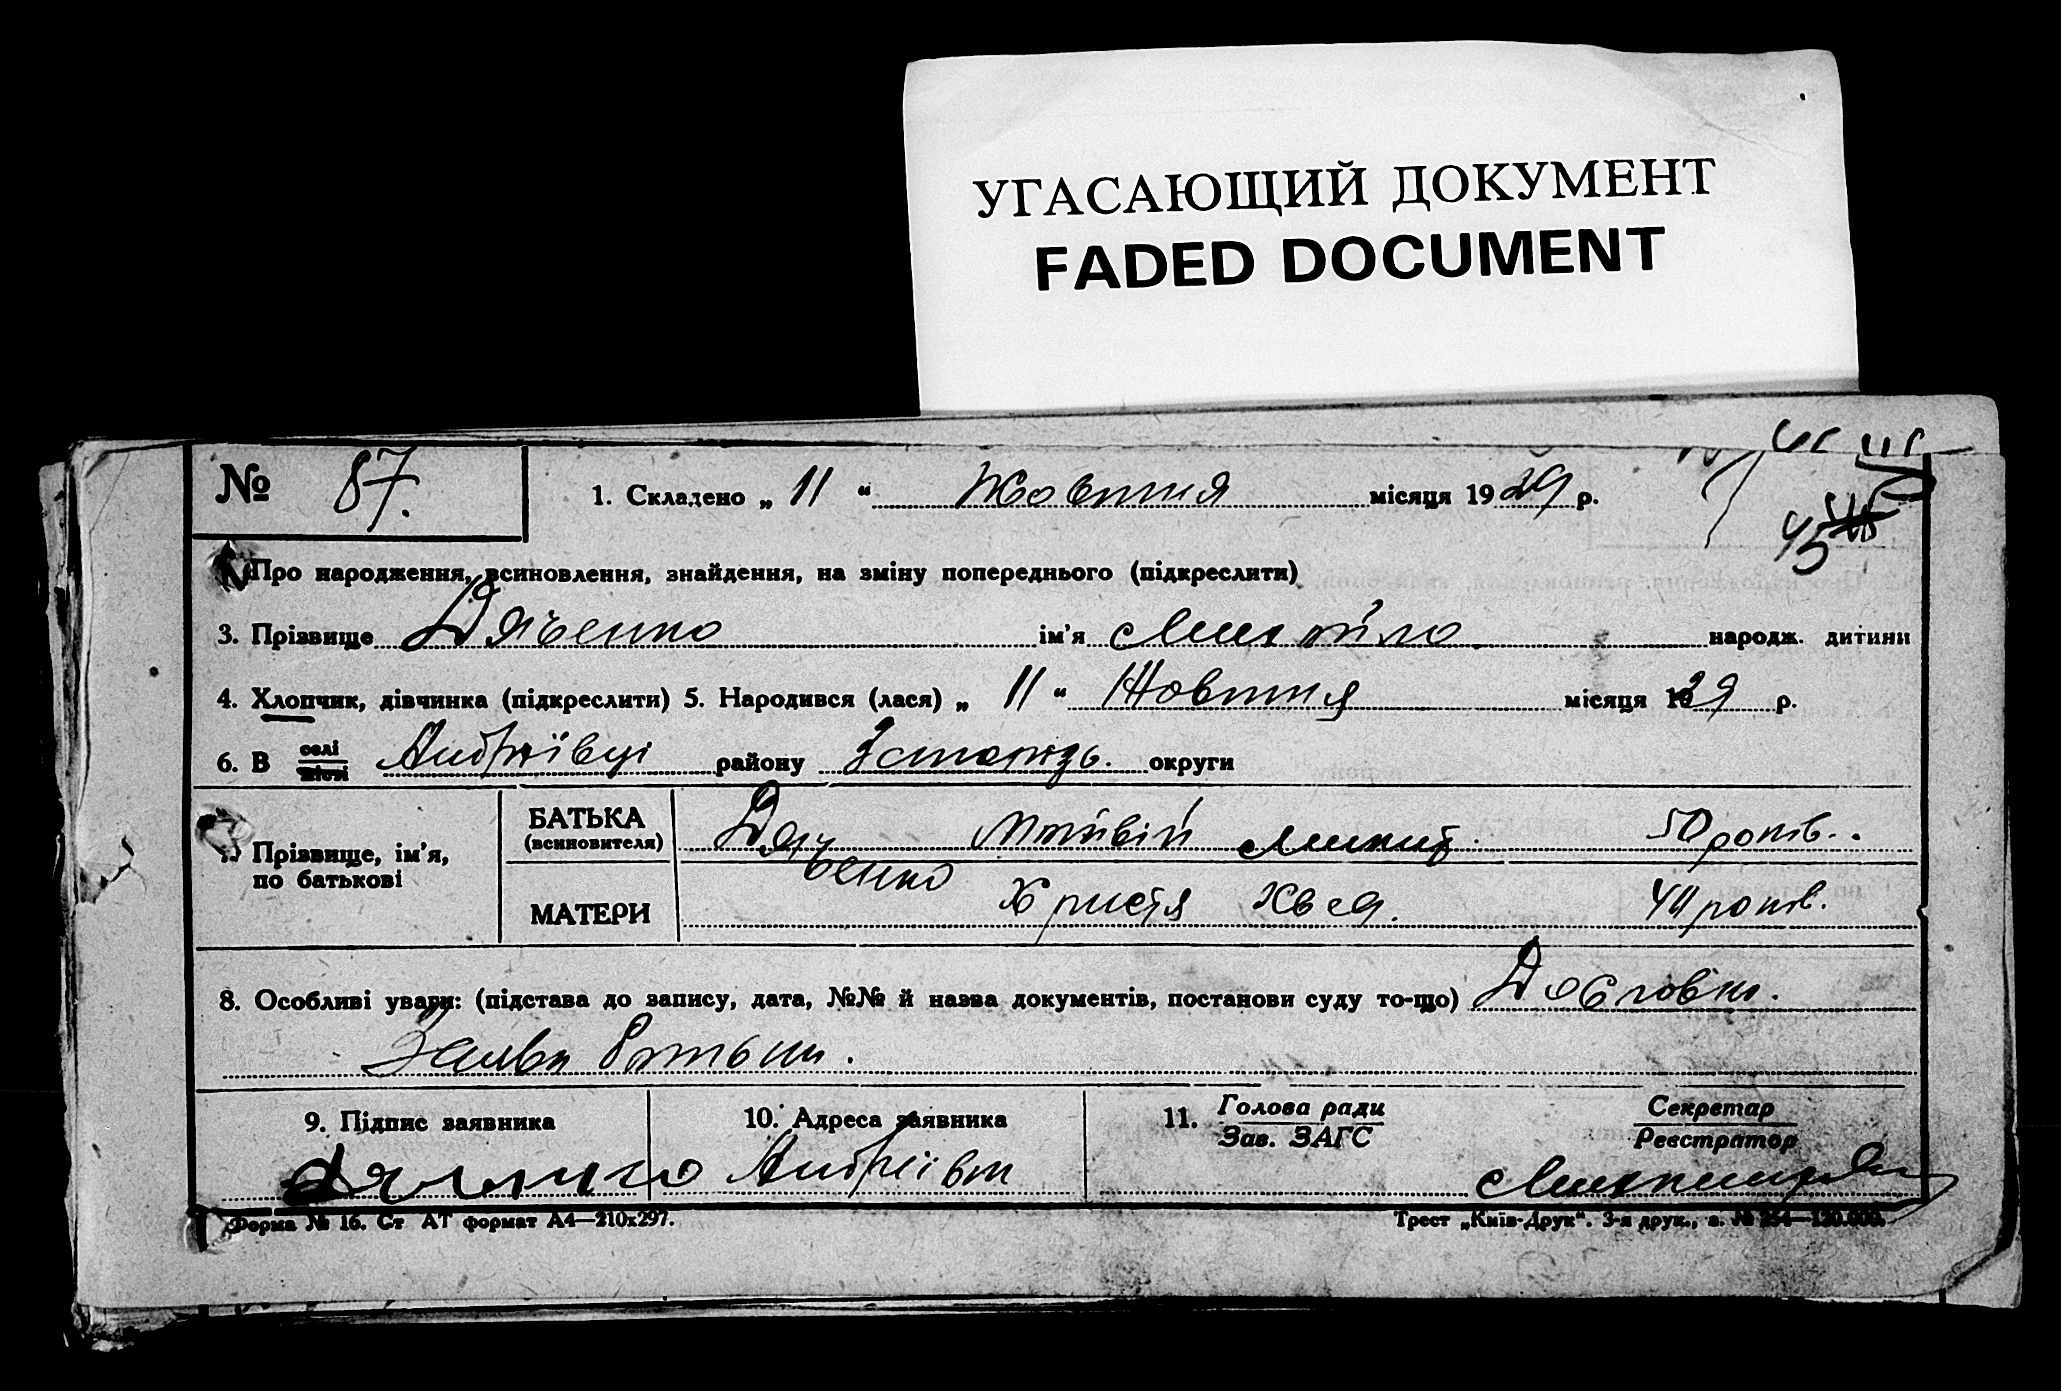 УГАСАЮЩИЙ ДОКУМЕНТ
FADED DOCUMENT
№ 87. 1. Складено „ 11 “ Жовтня місяця 1929 р.
45
Про народження, всиновлення, знайдення, на зміну попереднього (підкреслити)
3. Прізвище Дяченко ім’я Михайло народж. дитини
4. Хлопчик, дівчинка (підкреслити) 5. Народився (лася) „ 11 “ Жовтня місяця 1929 р.
6. В селі Андріївці району округи
місті
Прізвище, ім’я, по батькові
БАТЬКА (всиновителя) Дяченко Матвій Микит. 50 років.
МАТЕРИ Христя Хвед. 44 років.
8. Особливі уваги: (підстава до запису, дата, №№ й назва документів, постанови суду то-що) Дословно.
Заява батька.
9. Підпис заявника 10. Адреса заявника 11. Голова ради Секретар
Зав. ЗАГС Реєстратор
Андріївка
Форма № 16. Ст АТ формат А4—210х297. Трест „Київ-Друк“. 3-я друк., з. № 254—120.000.